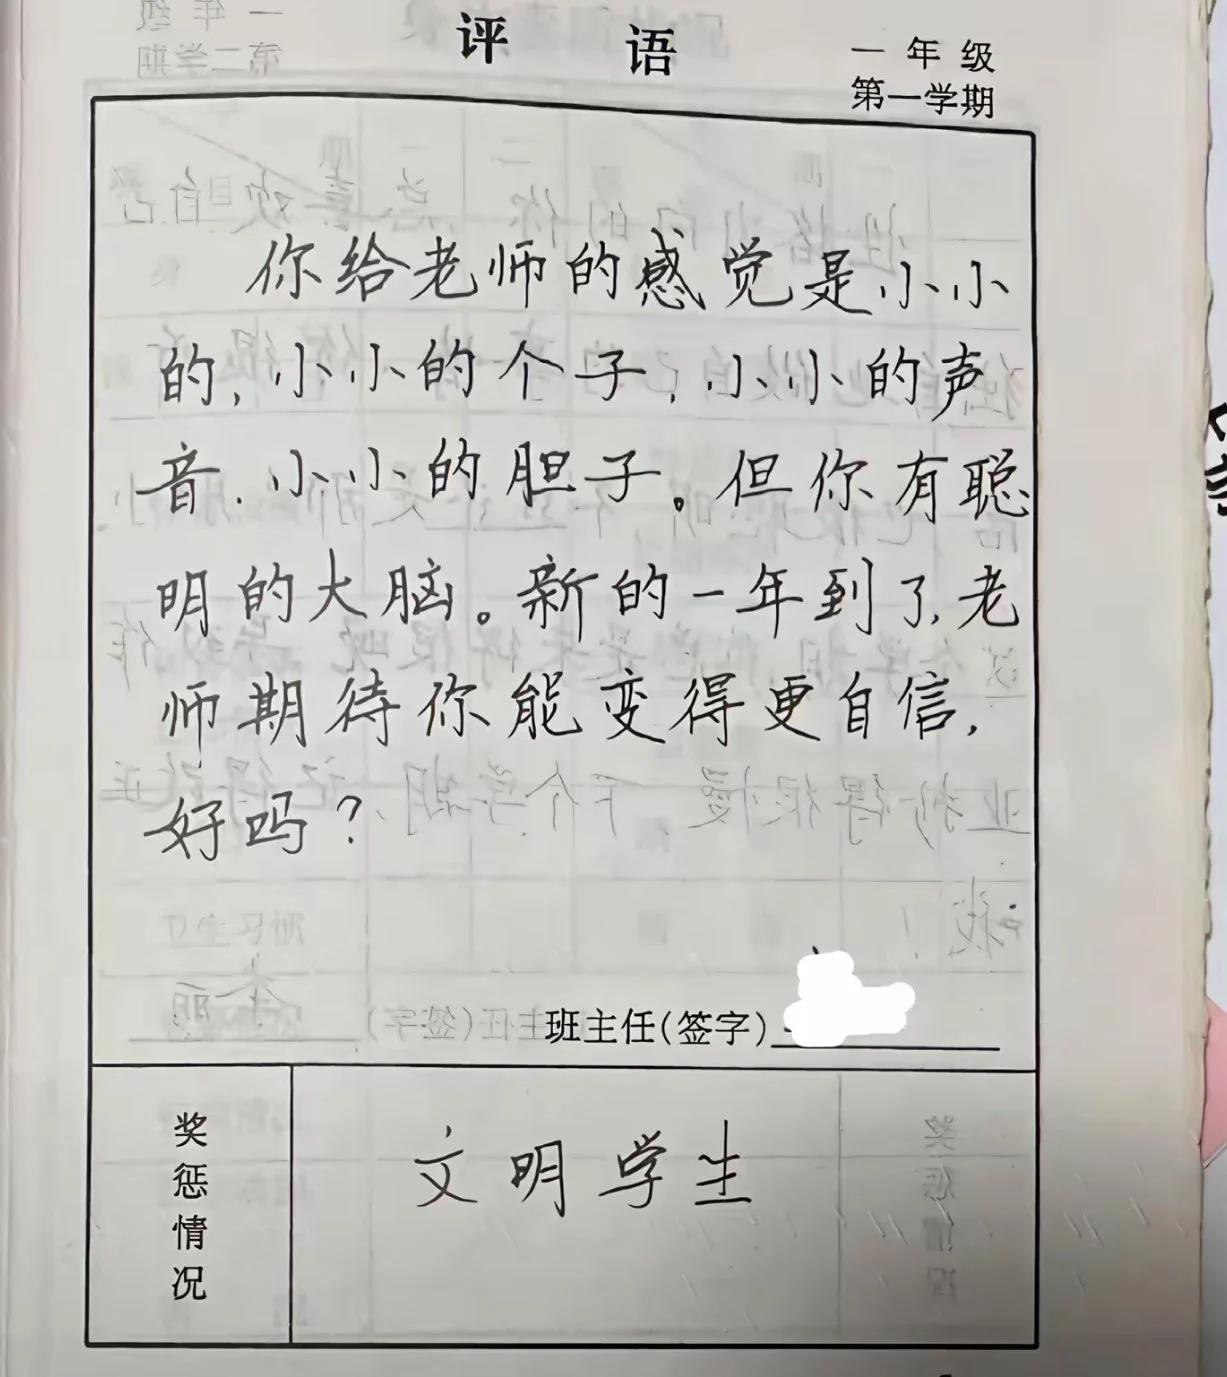 评 语
一年级
第一学期
你给老师的感觉是小小
的，小小的个子，小小的声
音，小小的胆子。但你有聪
明的大脑。新的一年到了，老
师期待你能变得更自信，
好吗？
班主任（签字）
奖惩情况
文明学生